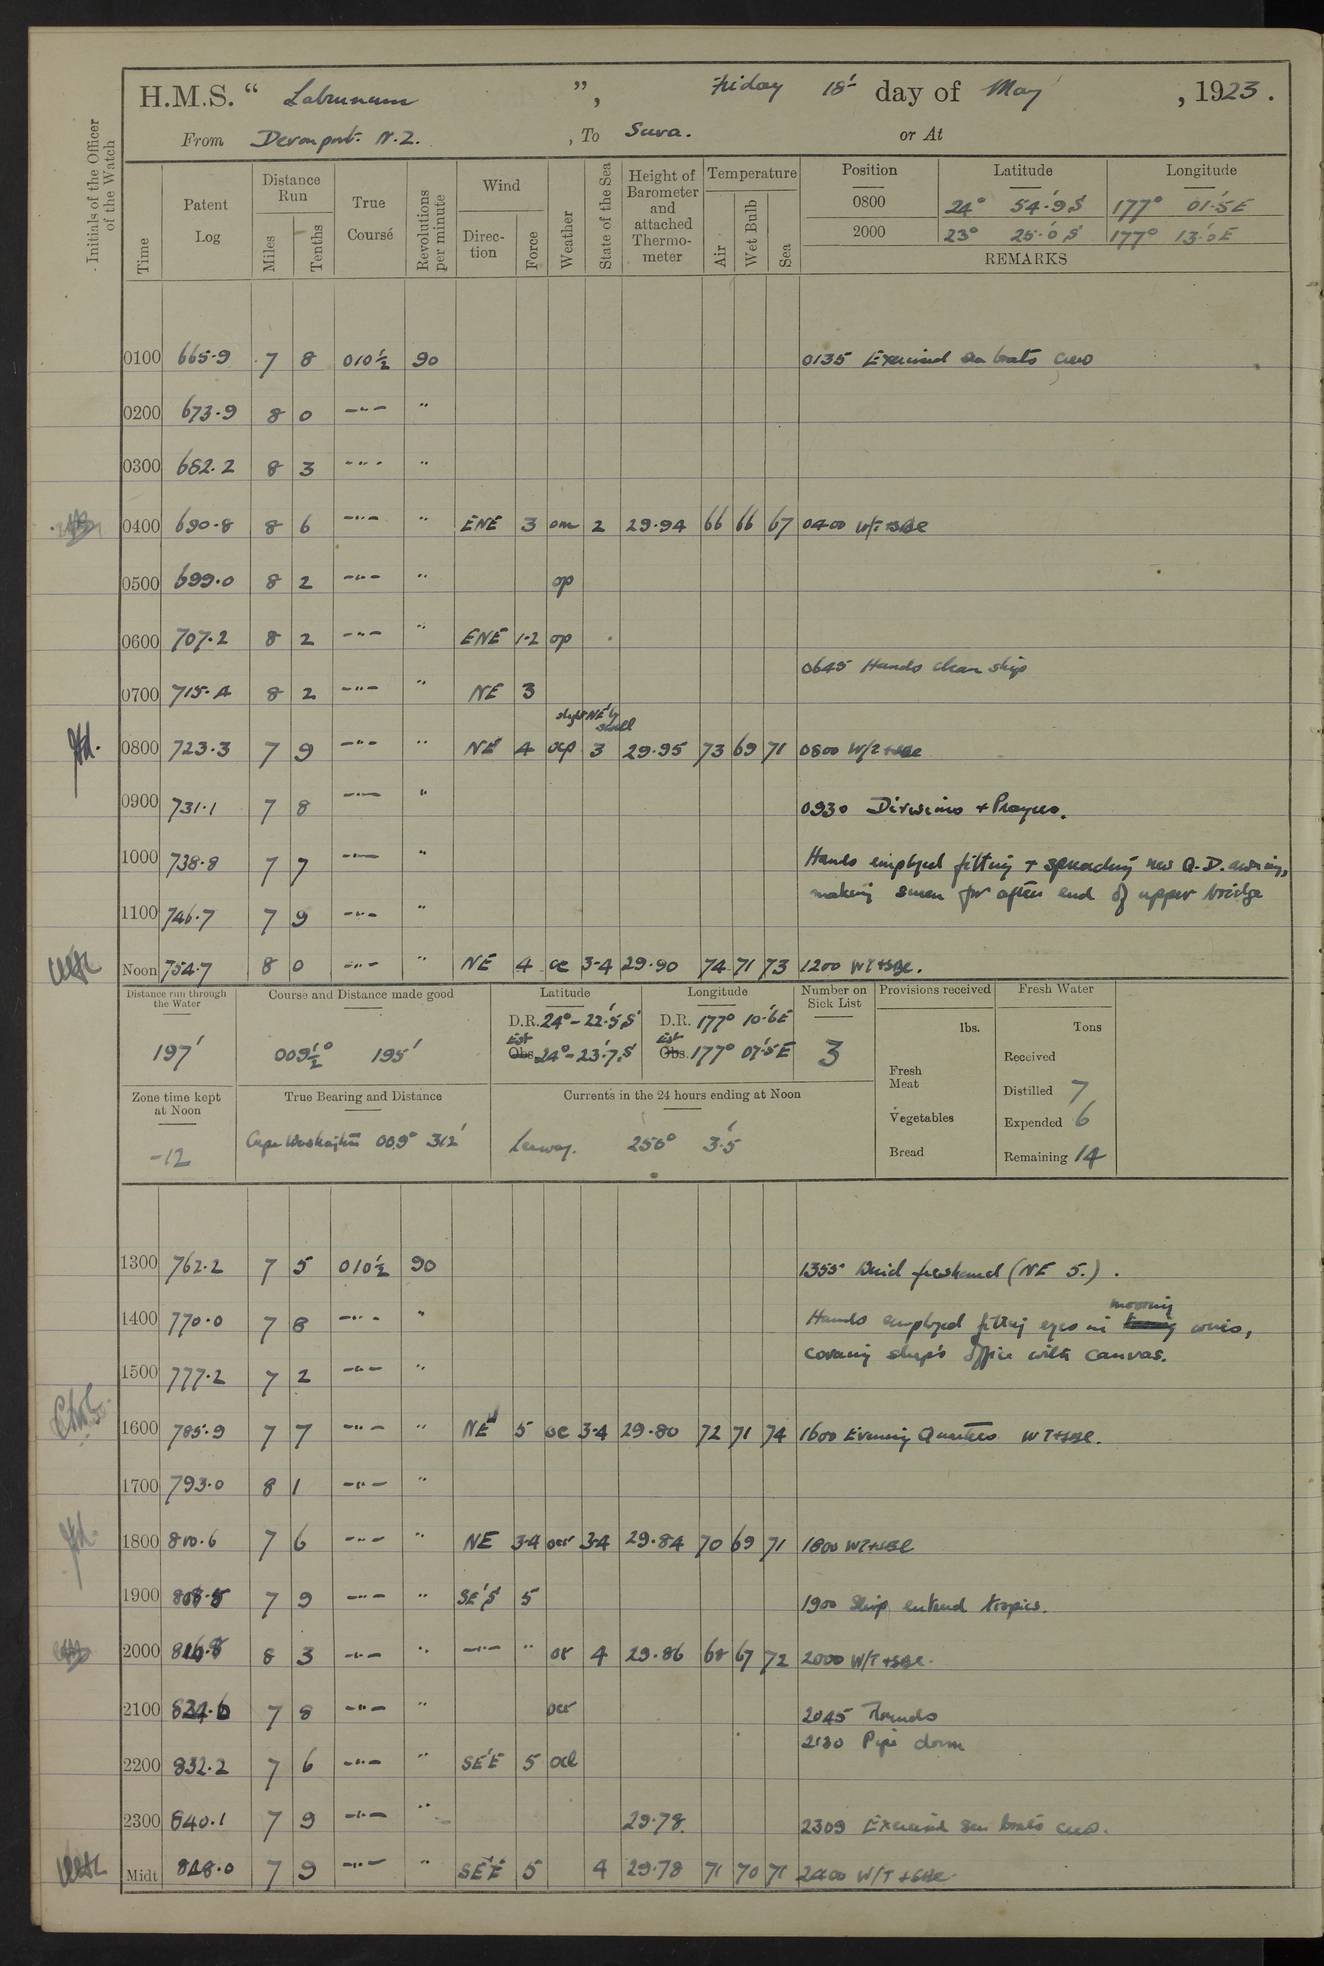 H.M.S. “ Laburnum ”, Friday 18th day of May , 1923 .
From Devonport. N.Z. , To Suva. or At
Initials of the Officer of the Watch
Time Patent Log Distance Run Miles Tenths True Course Revolutions per minute Wind Direction Force Weather State of the Sea Height of Barometer and attached Thermometer Temperature Air Wet Bulb Sea Position Latitude Longitude
0800 24° 54·9 S 177° 01·5 E
2000 23° 25·0 S 177° 13·0 E
REMARKS
0100 665·9 7 8 010½ 90 0135 Exercised sea boats crew
0200 673·9 8 0 -"- "
0300 682·2 8 3 -"- "
0400 690·8 8 6 -"- " ENE 3 om 2 29·94 66 66 67 0400 W/T + SBE
0500 699·0 8 2 -"- " op
0600 707·2 8 2 -"- " ENE 1-2 op
0645 Hands clean ship
0700 715·4 8 2 -"- " NE 3
slight NE'ly swell
0800 723·3 7 9 -"- " NE 4 ocp 3 29·95 73 69 71 0800 W/T + SBE
0900 731·1 7 8 -"- " 0930 Divisions + Prayers.
1000 738·8 7 7 -"- " Hands employed fitting + spreading new Q.D. awning,
making screen for after end of upper bridge
1100 746·7 7 9 -"- "
Noon 754·7 8 0 -"- " NE 4 oc 3-4 29·90 74 71 73 1200 WT+SBE.
Distance run through the Water Course and Distance made good Latitude Longitude Number on Sick List Provisions received Fresh Water
D.R. 24°-22·5 S D.R. 177° 10·6 E lbs. Tons
197' 009½° 195' Est Obs. 24°-23·7 S Est Obs. 177° 07·5 E 3 Received
Fresh Meat Distilled 7
Zone time kept at Noon True Bearing and Distance Currents in the 24 hours ending at Noon Vegetables Expended 6
-12 Cape Washington 009° 312' Leeway. 250° 3·5 Bread Remaining 14
1300 762·2 7 5 010½ 90 1355 Wind freshened (NE 5.).
1400 770·0 7 8 -"- " Hands employed fitting eyes in mooring wires,
covering ship's office with canvas.
1500 777·2 7 2 -"- "
1600 785·9 7 7 -"- " NE 5 oc 3-4 29·80 72 71 74 1600 Evening Quarters WT+SBE.
1700 793·0 8 1 -"- "
1800 800·6 7 6 -"- " NE 3-4 ocr 3-4 29·84 70 69 71 1800 WT+SBE
1900 808·5 7 9 -"- " SE'S 5 1900 Ship entered tropics.
2000 816·8 8 3 -"- " -"- " or 4 29·86 68 67 72 2000 W/T + SBE.
2100 824·6 7 8 -"- " ocr 2045 Rounds
2130 Pipe down
2200 832·2 7 6 -"- " SE'E 5 ocl
2300 840·1 7 9 -"- " 29·78 2309 Exercised sea boats crew.
Midt 848·0 7 9 -"- " SE'E 5 4 29·78 71 70 71 2400 W/T + SBE